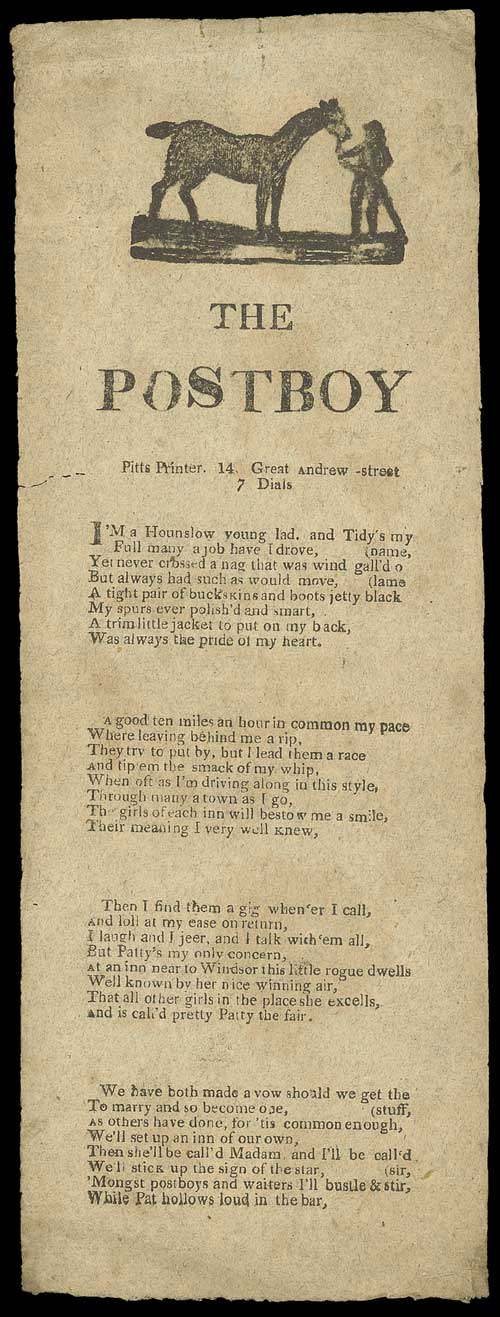 THE
POSTBOY
Pitts Printer. 14. Great Andrew -street
7 Dials
I'M a Hounslow young lad. and Tidy's my
Full many a job have I drove, (name,
Yet never crossed a nag that was wind gall'd o
But always had such as would move, (lame
A tight pair of buckskins and boots jetty black
My spurs ever polish'd and smart,
A trim little jacket to put on my back,
Was always the pride of my heart.
A good ten miles an hour in common my pace
Where leaving behind me a rip,
They try to put by, but I lead them a race
And tip em the smack of my whip,
When oft as I'm driving along in this style,
Through many a town as I go,
The girls of each inn will bestow me a smile,
Their meaning I very well knew,
Then I find them a gig when'er I call,
And loll at my ease on return,
I laugh and I jeer, and I talk with 'em all,
But Patty's my only concern,
At an inn near to Windsor this little rogue dwells
Well known by her nice winning air,
That all other girls in the place she excells,
And is call'd pretty Patty the fair.
We have both made a vow should we get the
To marry and so become one, (stuff,
As others have done, for 'tis common enough,
We'll set up an inn of our own,
Then she'll be call'd Madam and I'll be call'd
We'll stick up the sign of the star, (sir,
'Mongst postboys and waiters I'll bustle & stir,
While Pat hollows loud in the bar,